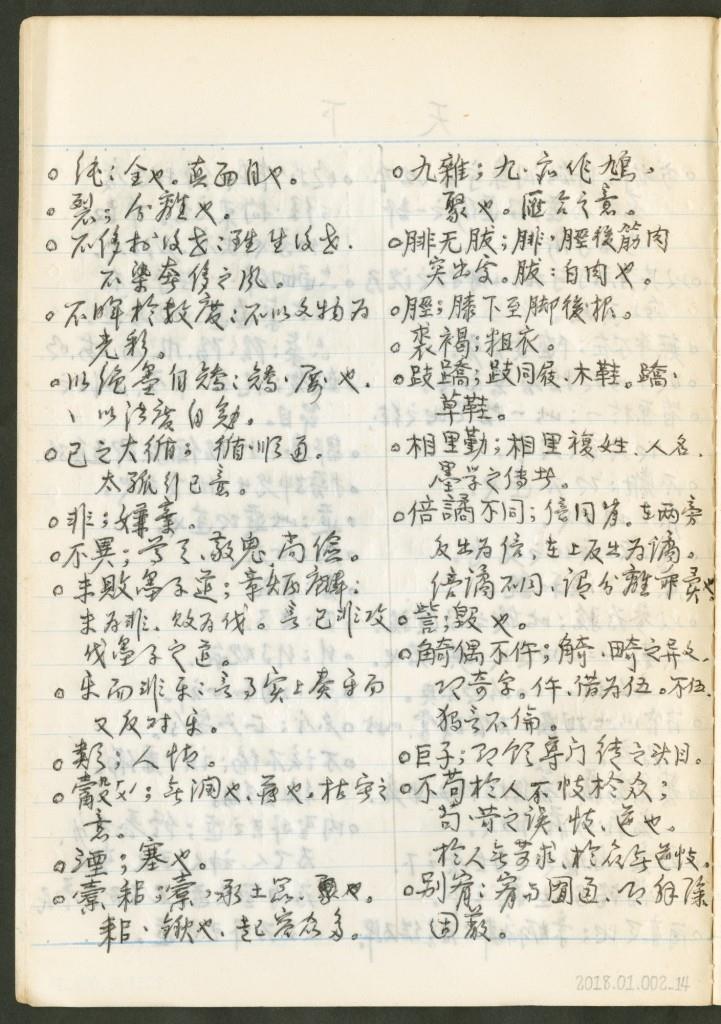 ○純:全也。真面目也。
○裂;分離也。
○不侈於後世:
不染奢侈之風。
○不暉於數度:不以文物為
光彩。
○以繩墨自矯:矯·厲也.
、以法度自勉。
○已之大循;循·順通。
太
○非;嫌棄。
○不異;尊天、敬鬼尚儉。
○未敗墨子道;
未為非、敗為伐。言已非攻
伐墨子之道。
○樂而非樂:言事實上奏樂而
又反對樂。
○類;人情。
○觳;無潤也、薄也、枯寂之
意。
○湮;塞也。
○橐耜;橐·承土器、聚也。
耜·鍬也、起容衆多。
○九雜;九·亦作鳩。
聚也。匯合之意。
○腓无胈;腓·脛後筋肉
突出處。胈:白肉也。
○脛;膝下至脚後根。
○裘褐;粗衣。
○跂蹻;跂同屐、木鞋。蹻·
草鞋。
○相里勤;相里複姓、人名.
墨学之傳者。
○倍譎不同;倍同背。在兩旁
反出為倍,在上反出為譎。
倍譎不同、謂分離乖異也
○訾;毀也。
○觭偶不仵;觭、畸之異文。
即奇字。仵、借為伍。不伍、
猶言不倫。
○巨子;即領導门徒之头目。
○不苟於人不忮於众;
苟·苛之誤、忮、逆也。
於人無苛求、於众無逆忮。
○别宥:宥与囿通、即解除
囿蔽。
2018.01.002-14